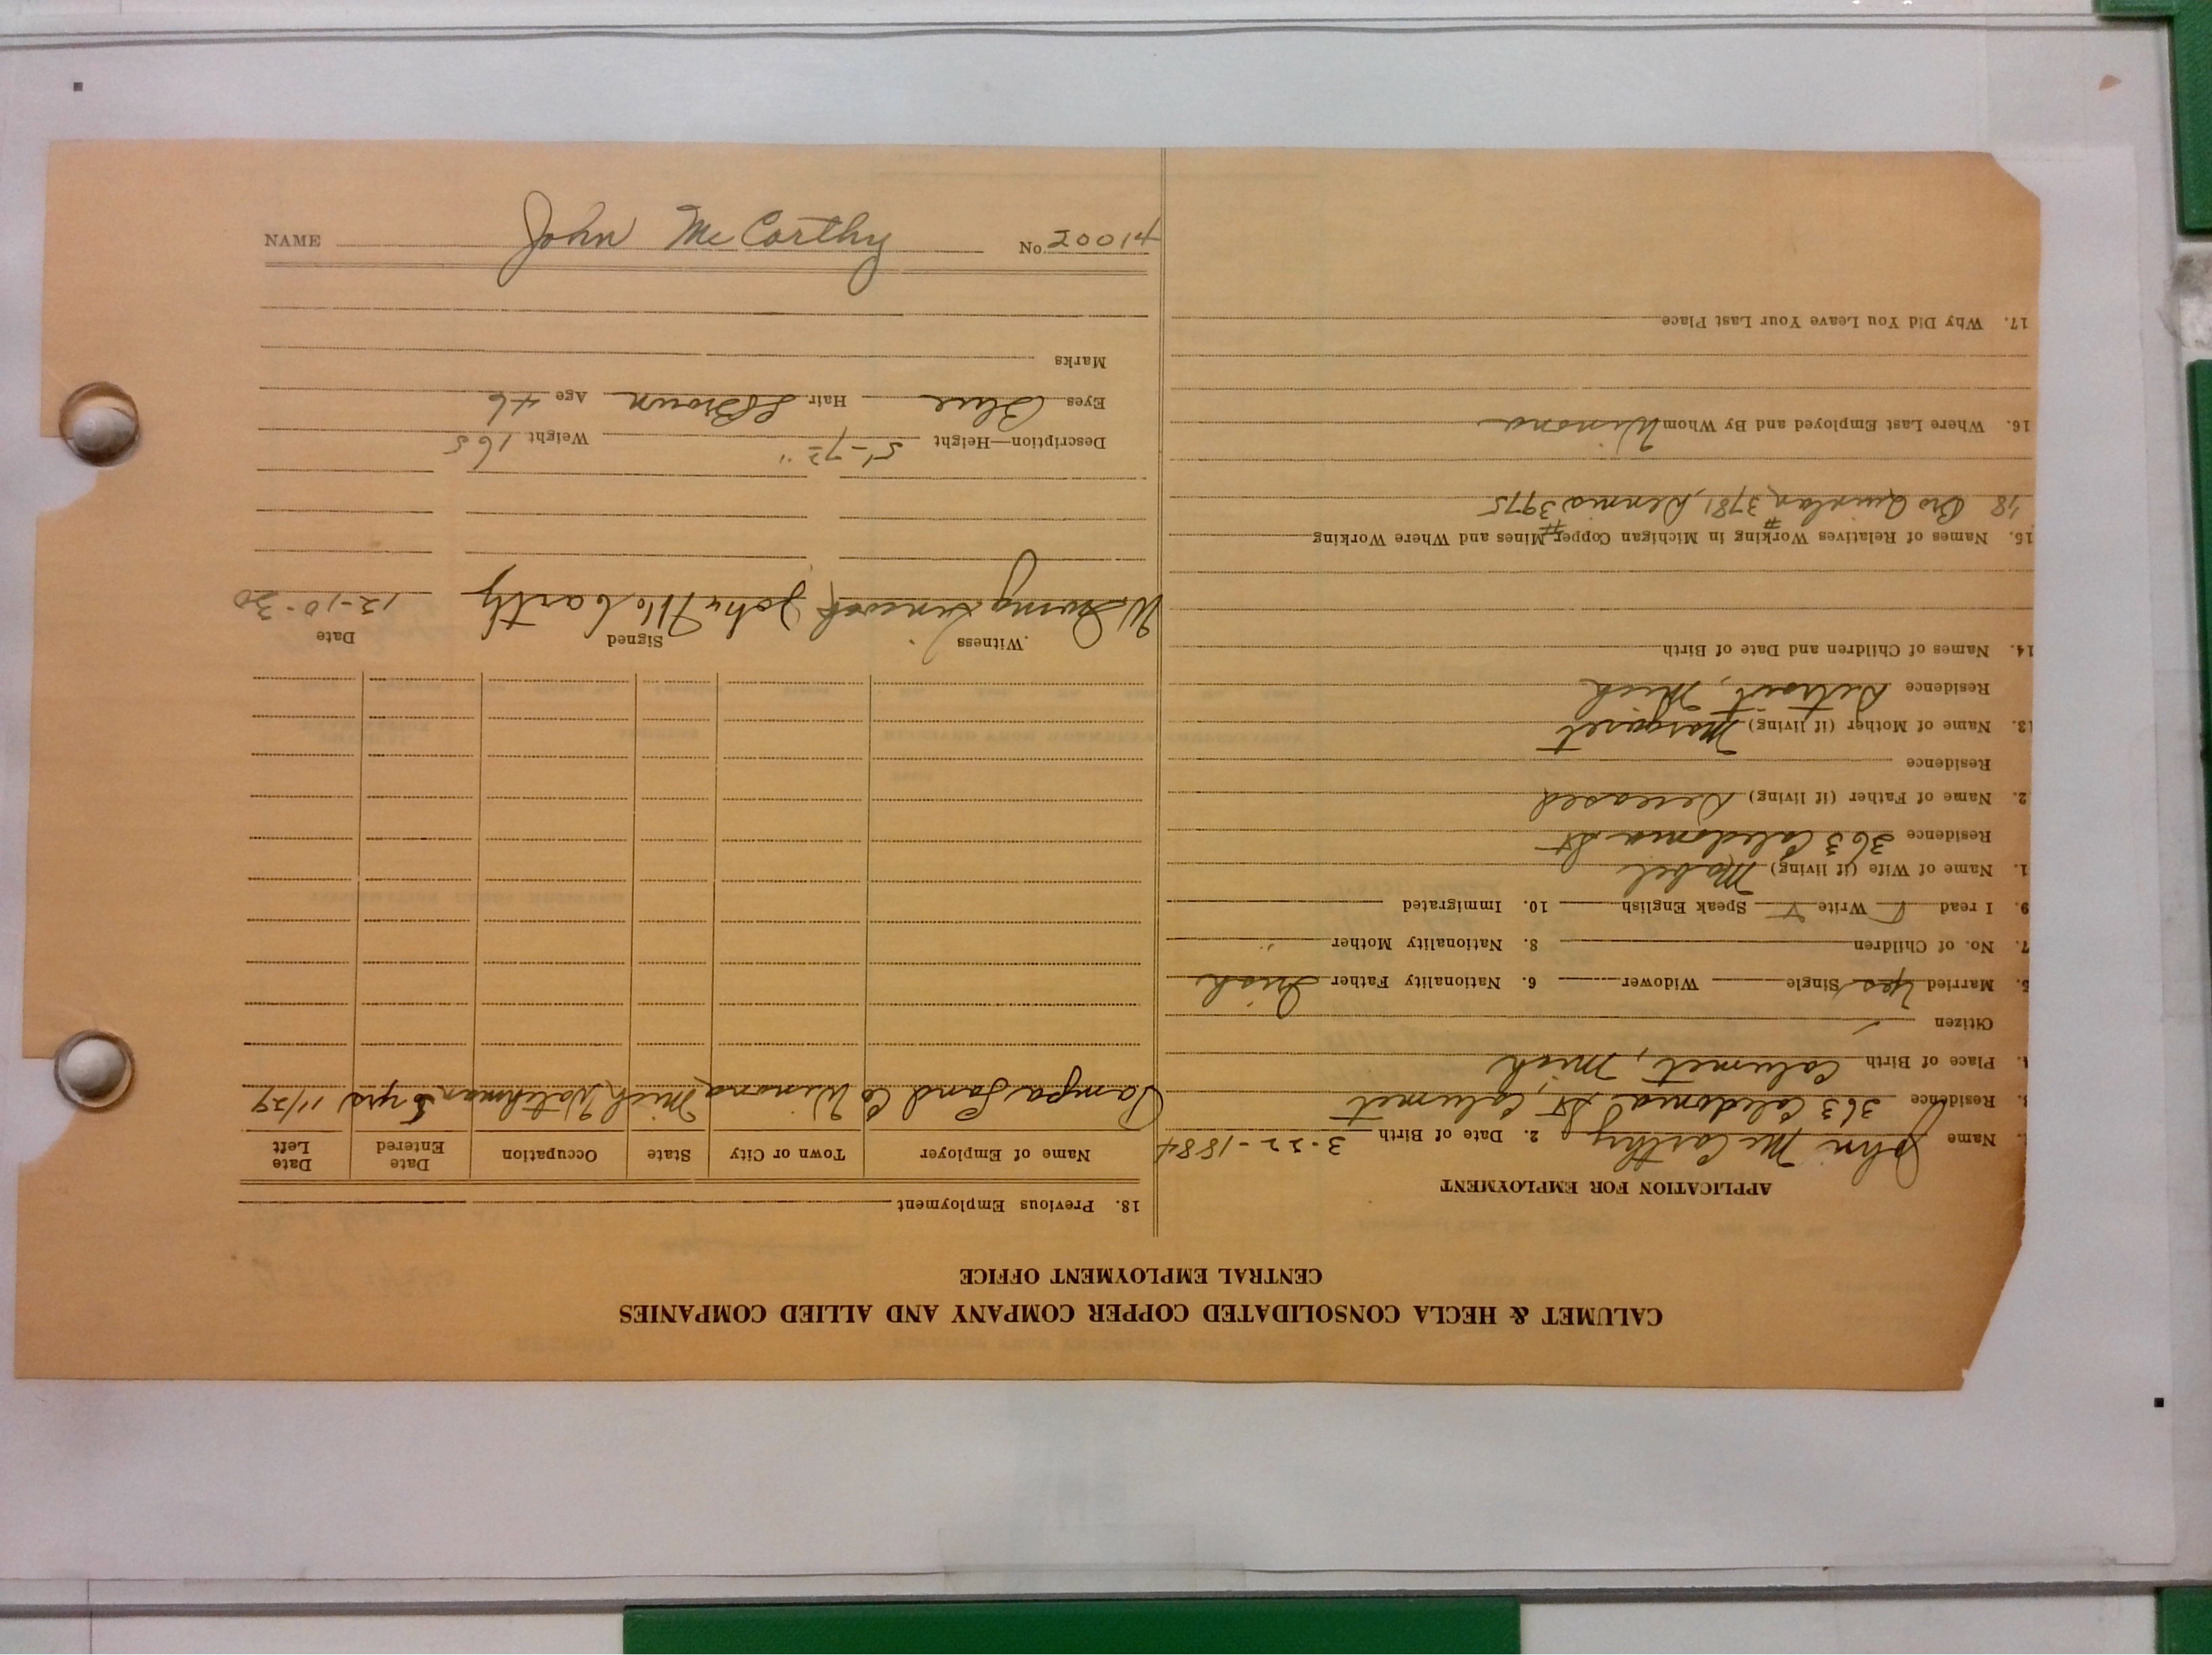 NAME John McCarthy No 20014
CALUMET & HECLA CONSOLIDATED COPPER COMPANY AND ALLIED COMPANIES
CENTRAL EMPLOYMENT OFFICE
APPLICATION FOR EMPLOYMENT
Name John McCarthy 2. Date of Birth 3-22-1884
Residence 363 Caledonia St, Calumet
Place of Birth Calumet, Mich
Citizen ✓
5. Married Yes Single Widower 6. Nationality Father Irish
7. No. of Children 8. Nationality Mother "
9. I read ✓ Write ✓ Speak English 10. Immigrated
1. Name of Wife (if living) Mabel
Residence 363 Caledonia St
2. Name of Father (if living) Deceased
Residence
13. Name of Mother (if living) Margaret
Residence Detroit, Mich
14. Names of Children and Date of Birth
15. Names of Relatives Working in Michigan Copper Mines and Where Working
18 Bro Quinlan #3781, Dennis #3975
16. Where Last Employed and By Whom Winona
17. Why Did You Leave Your Last Place
18. Previous Employment
Name of Employer Town or City State Occupation Date Entered Date Left
Pampa Land Co Winona Mich Watchman 5 yrs 11/29
Witness Signed Date
W. John McCarthy 12-10-30
Description—Height 5'-7½" Weight 165
Eyes Blue Hair Brown Age 46
Marks